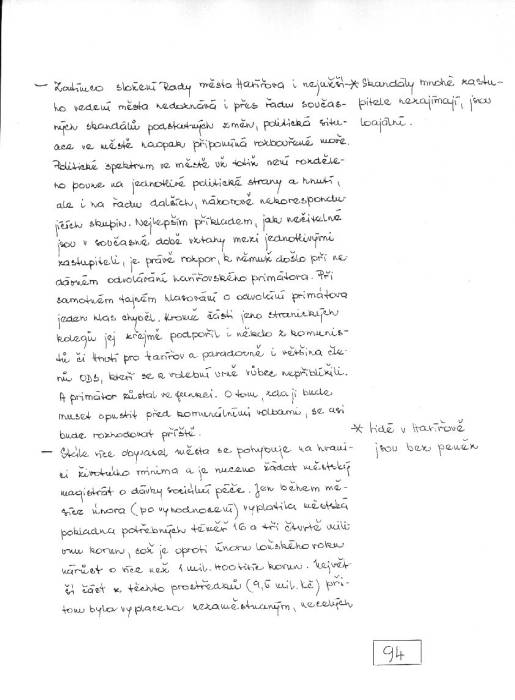 — Zatímco složení Rady města Havířova i nejužší-
ho vedení města nedoznává i přes řadu součas-
ných skandálů podstatných změn, politická situ-
ace ve městě naopak připomíná rozbouřené moře.
Politické spektrum ve městě už totiž není rozděle-
no pouze na jednotlivé politické strany a hnutí,
ale i na řadu dalších, názorově nekorespondu-
jících skupin. Nejlepším příkladem, jak nečitelné
jsou v současné době vztahy mezi jednotlivými
zastupiteli, je právě rozpor, k němuž došlo při ne-
dávném odvolávání havířovského primátora. Při
samotném tajném hlasování o odvolání primátora
jeden hlas chyběl. Kromě části jeho stranických
kolegů jej zřejmě podpořil i někdo z komunis-
tů či Hnutí pro Havířov a paradoxně i většina čle-
nů ODS, kteří se k volební urně vůbec nepřiblížili.
A primátor zůstal ve funkci. O tom, zda ji bude
muset opustit před komunálními volbami, se asi
bude rozhodovat příště.
— Stále více obyvatel města se pohybuje na hrani-
ci životního minima a je nuceno žádat městský
magistrát o dávky sociální péče. Jen během mě-
síce února (po vyhodnocení) vyplatila městská
pokladna potřebných téměř 16 a tři čtvrtě mili-
onu korun, což je oproti únoru loňského roku
nárůst o více než 1 mil. 400 tisíc korun. Největ-
ší část z těchto prostředků (9,5 mil. Kč) při-
tom byla vyplacena nezaměstnaným, necelých
* Skandály mnohé zastu-
pitele nezajímají, jsou
loajální.
* Lidé v Havířově
jsou bez peněz
94